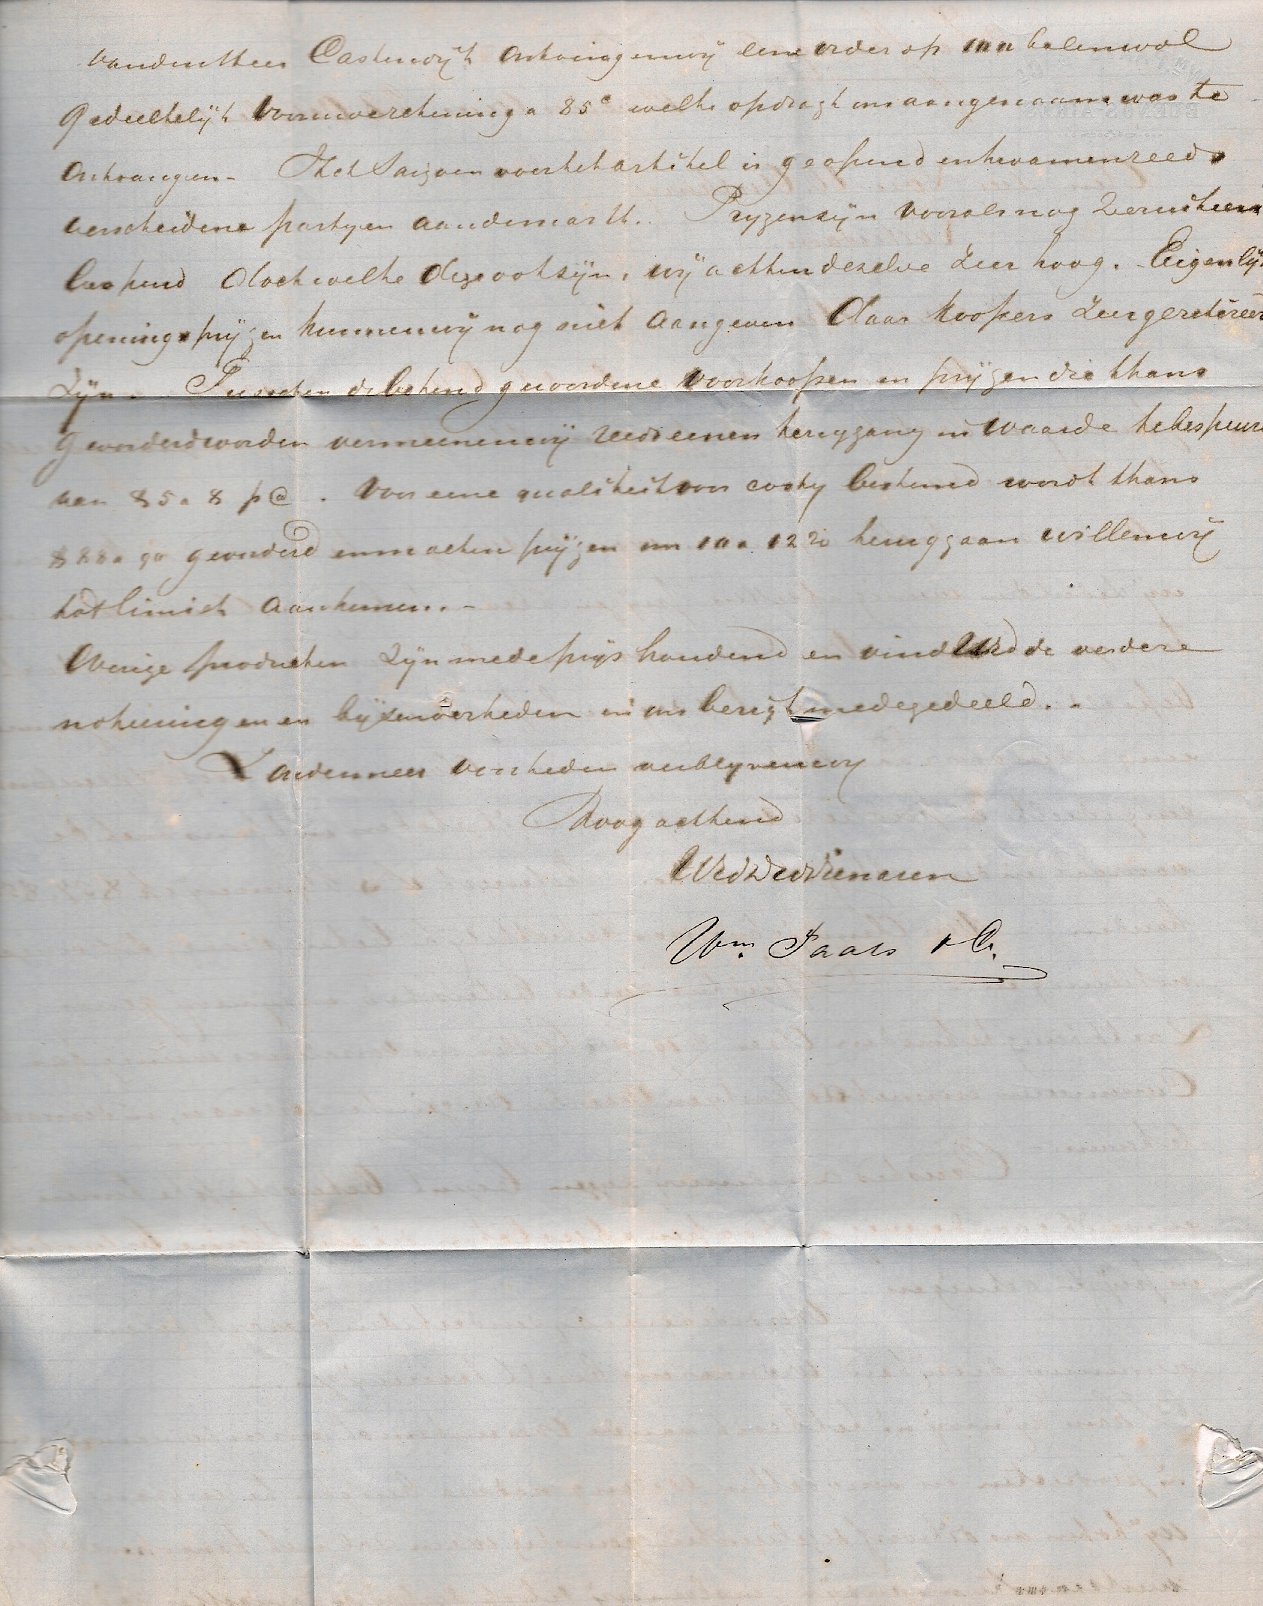 van den Heer Casterwijk ontvingen wij eene order op 100 balen wol
gedeeltelijk voor uwe rekening a 85c welke opdragt ons aangenaam was te
ontvangen - Het Saizoen voor het artikel is geopend en kwamen reeds
verscheidene partyen aan de markt. Pryzen zijn vooralsnog zeer uiteen
loopend doch welke deze ook zijn, wij achten dezelve zeer hoog. Eigenlijk
openings prijzen kunnen wij nog niet aangeven daar koopers zeer gereserveerd
zijn - Tusschen de bekend gewordene voorkoopen en prijzen die thans
gevorderd worden vermeenen wij reeds eenen teruggang in waarde te bespeuren
van 5 a 8 p@. Voor eene qualiteit voor bestemd wordt thans
88 a 90 gevorderd en mochten prijzen om 10 a 12 % teruggaan willen wij
tot limiet aankomen. -
Overige producten zijn mede prijshoudend en vind UEd de verdere
noteeringen en bijzonderheden in ons berigt medegedeeld. -
Zonder meer voor heden verblyven wij
Hoogachtend
UEd DwDienaren
Wm. & Co.